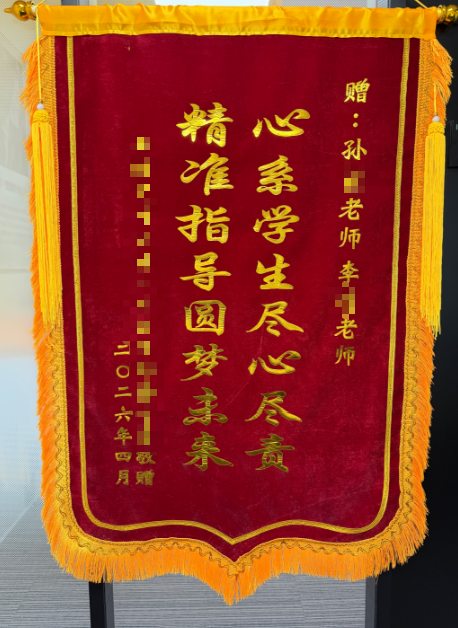 赠：孙老师李老师
心系学生尽心尽责
精准指导圆梦未来
敬赠
二〇二六年四月